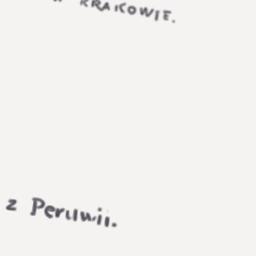 KRAKOWIE.
z Peruwii.